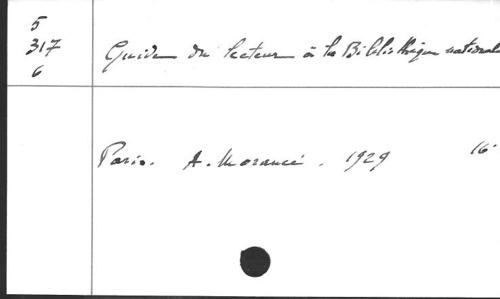 5
317
6
Guide du lecteur à la Bibliothèque nationale
Paris. A. Morancé. 1929 16°